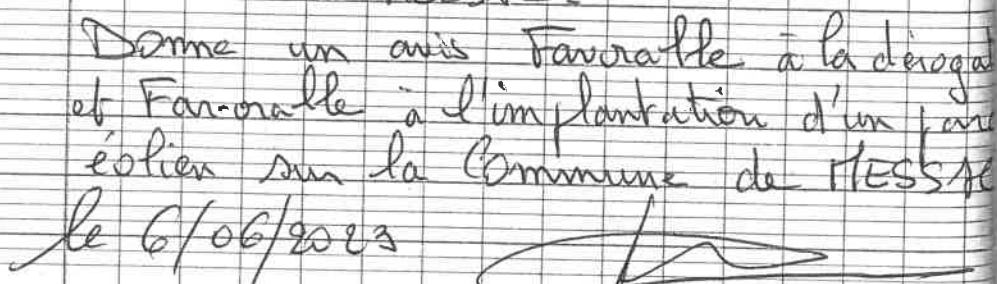 Donne un avis Favorable à la dérogat
et Favorable à l'implantation d'un parc
éolien sur la Commune de MESSAC
le 6/06/2023